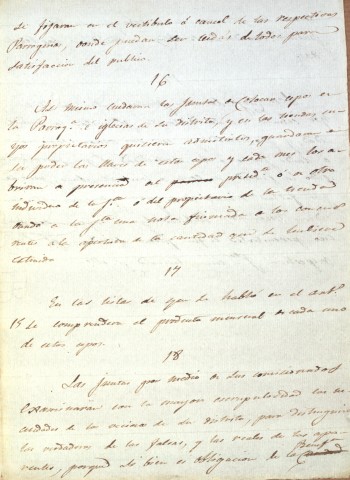 se fijaran en el vestibulo ó cancel de las respectivas
Parroquias, donde puedan ser leidas de todos para
satisfaccion del publico.
16
Asi mismo cuidaran las Juntas de colocar cepos en
las Parroq.s é iglesias de su distrito, y en las tiendas, cu-
yos propietarios quisieren admitirlos, guardaran en
su poder las llaves de estos cepos y cada mes los a-
briran a presencia del presid.te ó de otro
individuo de la J.ta ó del propietario de la tienda
a la J.ta una nota firmada
a la de la cantidad que se hubiere
17
En las listas de que se habló en el art.o
15 se comprendera el producto mensual de cada uno
de estos cepos.
18
Las juntas por medio de sus comisionados
examinaran con la mayor escrupulosidad las ne-
cesidades de los vecinos de su distrito, para distinguir las
verdaderas de las falsas, y las reales de las apa-
rentes, porque si bien es obligacion de la